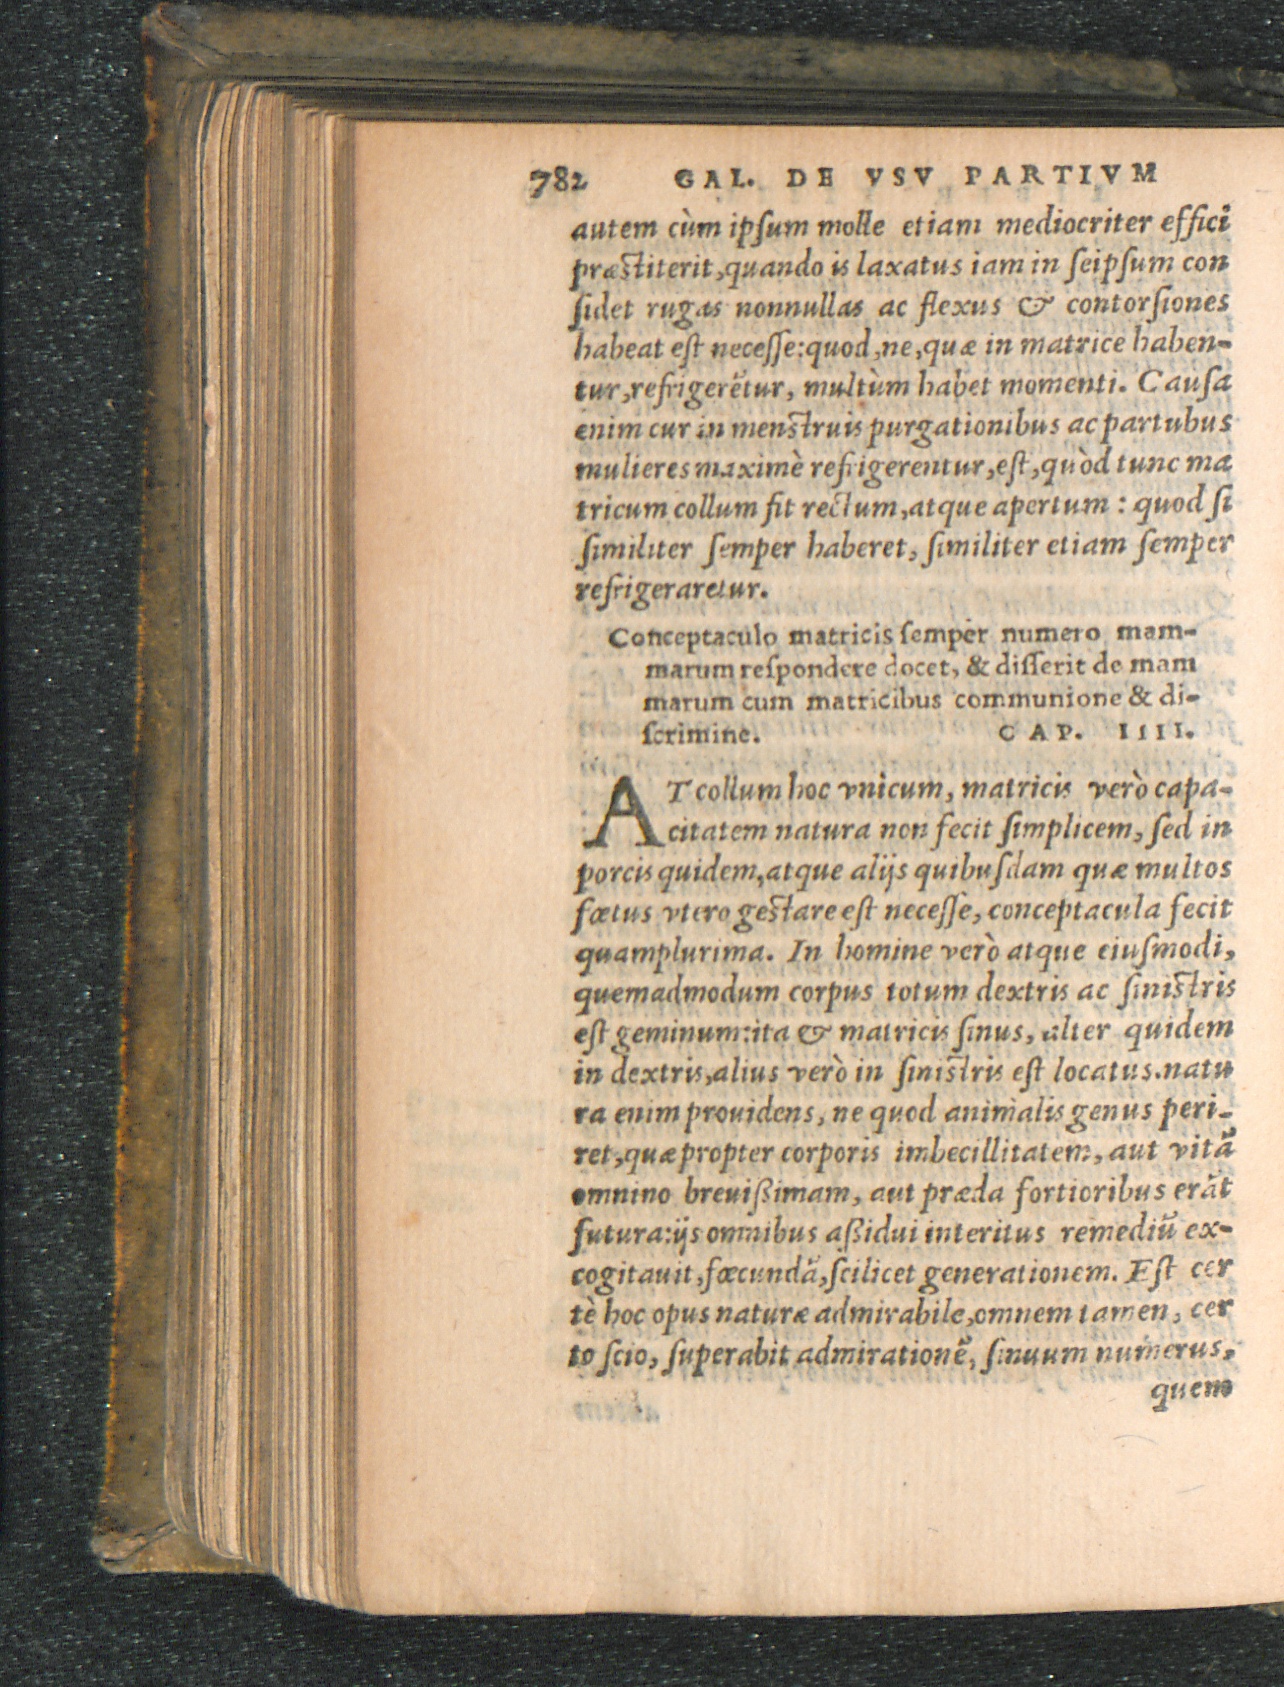 782 GAL. DE VSV PARTIVM
autem cùm ipſum molle etiam mediocriter effici
præſtiterit, quando is laxatus iam in ſeipſum con
ſidet rugas nonnullas ac flexus & contorſiones
habeat eſt neceſſe: quod, ne, quæ in matrice haben-
tur, refrigerẽtur, multùm habet momenti. Cauſa
enim cur in menſtruis purgationibus ac partubus
mulieres maximè refrigerentur, eſt, quòd tunc ma
tricum collum fit rectum, atque apertum : quod ſi
ſimiliter ſemper haberet, ſimiliter etiam ſemper
refrigeraretur.
Conceptaculo matricis ſemper numero mam-
marum reſpondere docet, & diſſerit de mam
marum cum matricibus communione & di-
ſcrimine. CAP. IIII.
AT collum hoc vnicum, matricis verò capa-
citatem natura non fecit ſimplicem, ſed in
porcis quidem, atque alijs quibuſdam quæ multos
fœtus vtero geſtare eſt neceſſè, conceptacula fecit
quamplurima. In homine verò atque eiuſmodi,
quemadmodum corpus totum dextris ac ſiniſtris
eſt geminum: ita & matricis ſinus, alter quidem
in dextris, alius verò in ſiniſtris eſt locatus. natu
ra enim prouidens, ne quod animalis genus peri-
ret, quæ propter corporis imbecillitatem, aut vitã
omnino breuißimam, aut præda fortioribus erãt
futura: ijs omnibus aßidui interitus remediũ ex-
cogitauit, fœcundã, ſcilicet generationem. Eſt cer
tè hoc opus naturæ admirabile, omnem tamen, cer
to ſcio, ſuperabit admirationẽ, ſinuum numerus,
quem